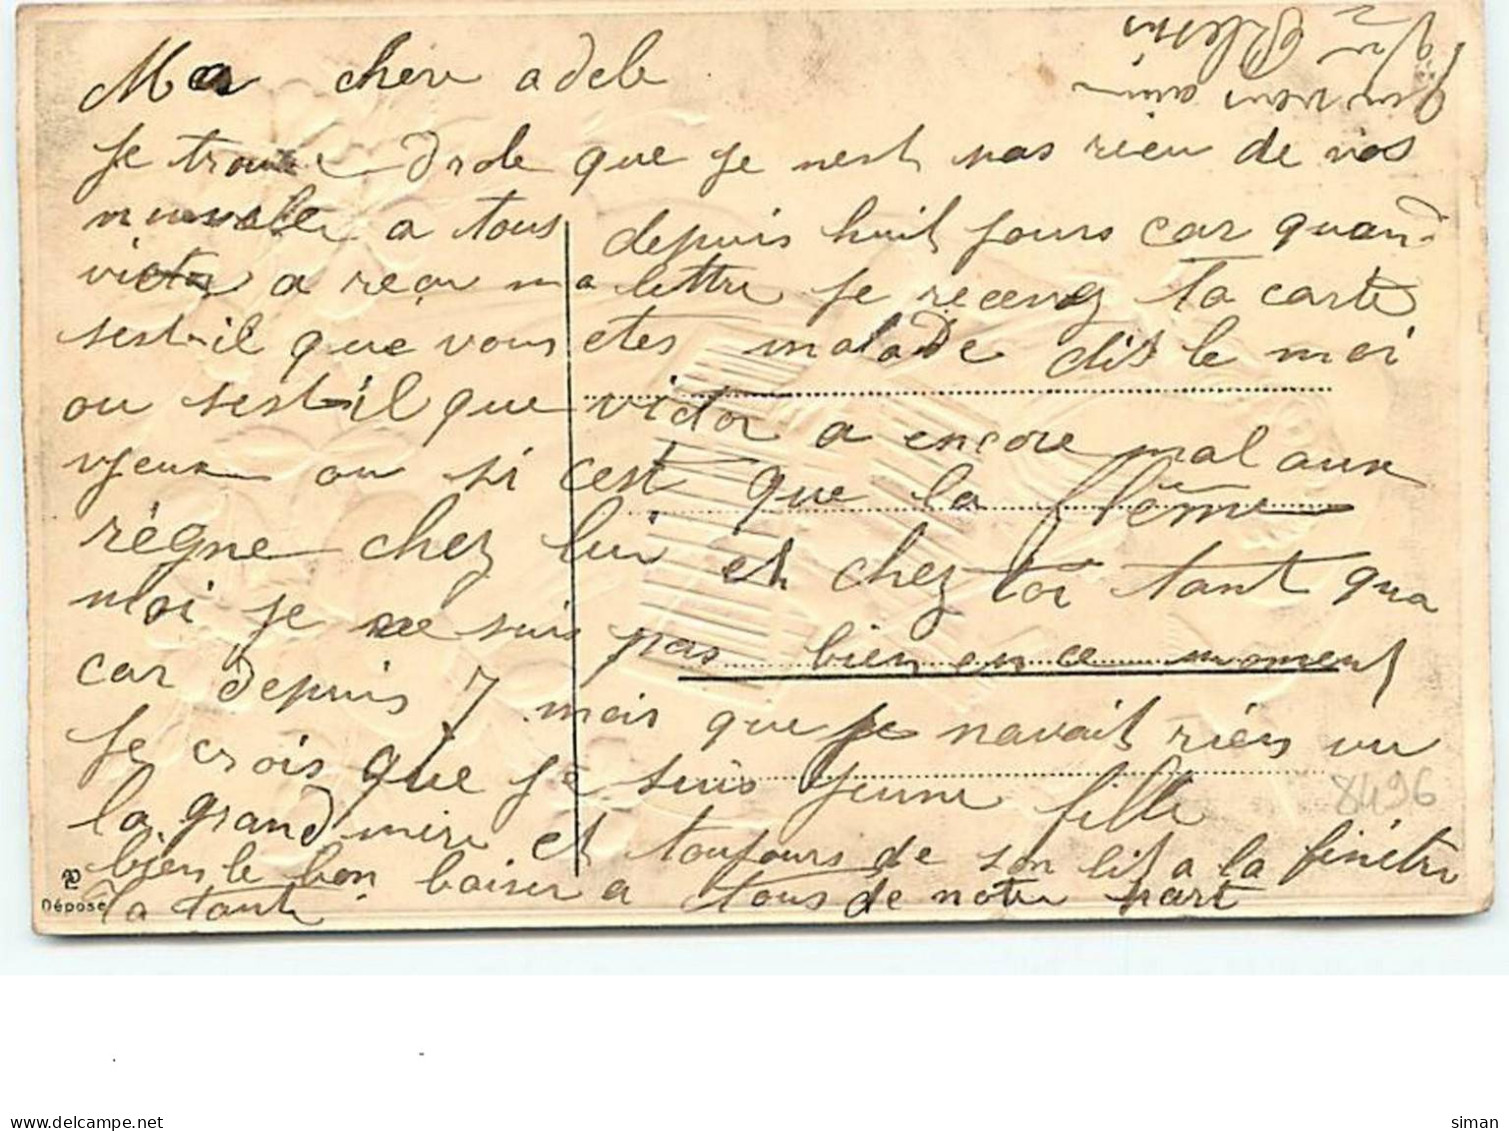 Ma chère adele
je trouve drole que je nest pas rien de vos
nuvelle a tous depuis huit jours car quand
victor a reçu ma lettre je recevez ta carte
sest-il que vous etes malade dis le moi
ou sest-il que victor a encore mal aux
yeux ou si c'est que la flême
règne chez lui et chez toi tant qua
moi je ne suis pas bien en ce moment
car depuis 7 mois que je navait rien vu
je crois que je suis jeune fille
la grand mère et toujours de son lit a la finêtre
bien le bon baiser a tous de notre part
ta tante
qui vous aime
Celestine
8496
Déposé
picclick.net
siman